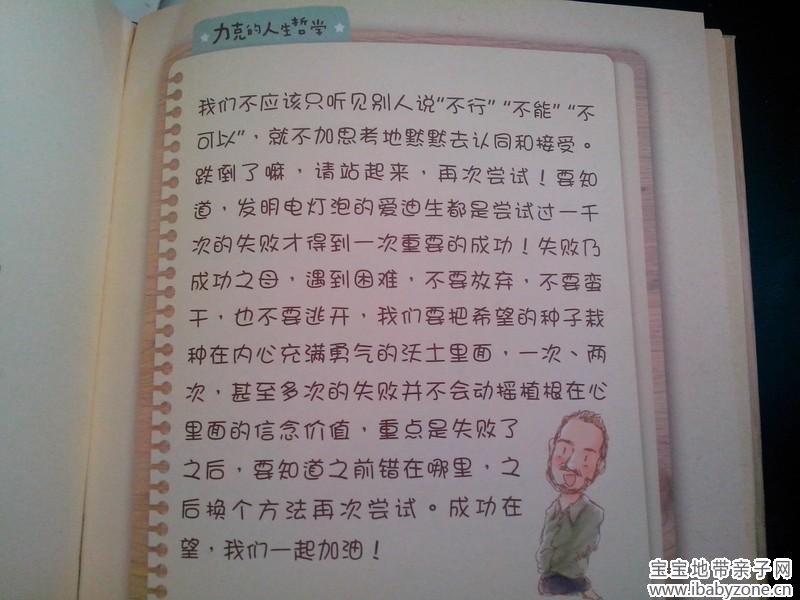 力克的人生哲学
我们不应该只听见别人说“不行”“不能”“不
可以”，就不加思考地默默去认同和接受。
跌倒了嘛，请站起来，再次尝试！要知
道，发明电灯泡的爱迪生都是尝试过一千
次的失败才得到一次重要的成功！失败乃
成功之母，遇到困难，不要放弃，不要蛮
干，也不要逃开，我们要把希望的种子栽
种在内心充满勇气的沃土里面，一次、两
次，甚至多次的失败并不会动摇植根在心
里面的信念价值，重点是失败了
之后，要知道之前错在哪里，之
后换个方法再次尝试。成功在
望，我们一起加油！
宝宝地带亲子网
www.ibabyzone.cn